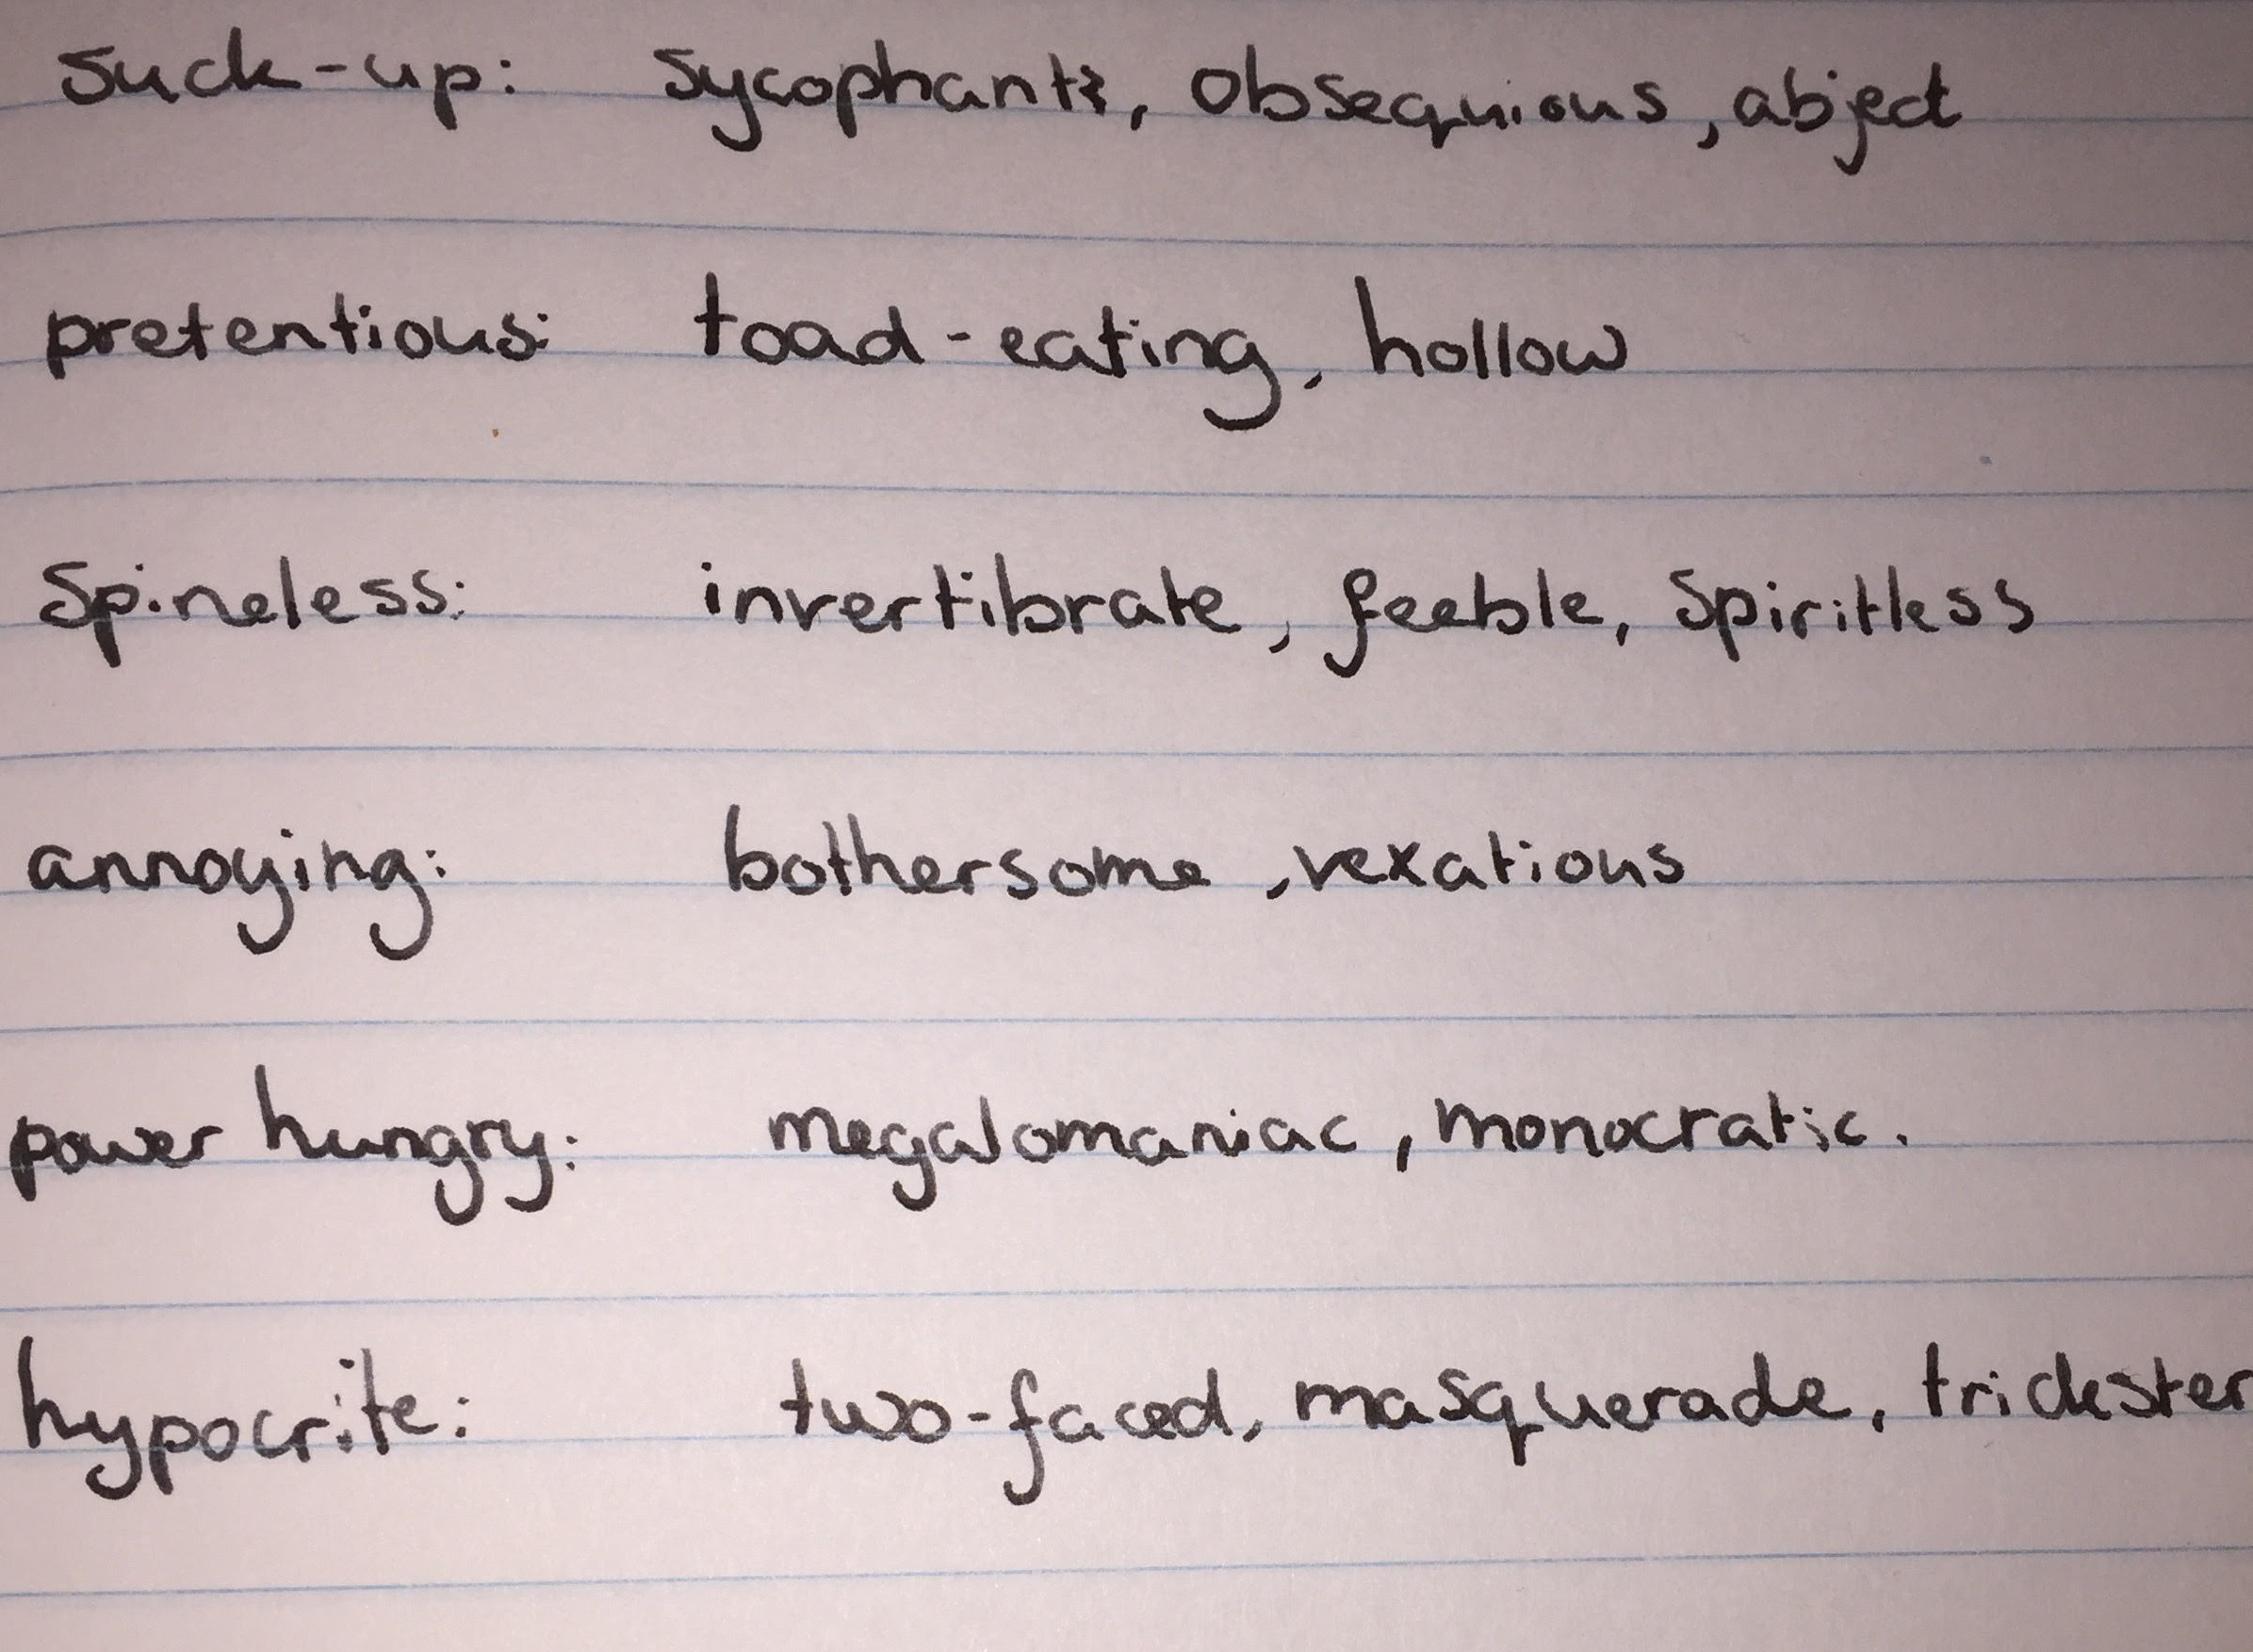 suck-up: sycophant, obsequious, abject
pretentious: toad-eating, hollow
spineless: invertibrate, feeble, spiritless
annoying: bothersome, vexatious
power hungry: megalomaniac, monocratic.
hypocrite: two-faced, masquerade, trickster